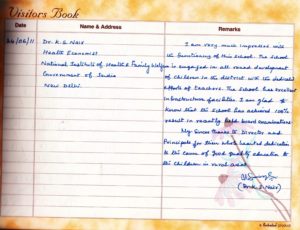 Visitors Book
Date
Name & Address
Remarks
24/06/11
Dr. K. S. Nair
Health Economist
National Institute of Health & Family Welfare
Government of India
New Delhi.
I am very much impressed with
the functioning of this school. The school
is engaged in all round development
of children in the district with the dedicated
efforts of teachers. The school has excellent
infrastructure facilities. I am glad to
know that the school has achieved 100%
result in recently held board examinations.
My sincere thanks to Director and
Principal for their whole hearted dedication
to the cause of good quality education to
the children in rural area.
(Dr. K. S. Nair)